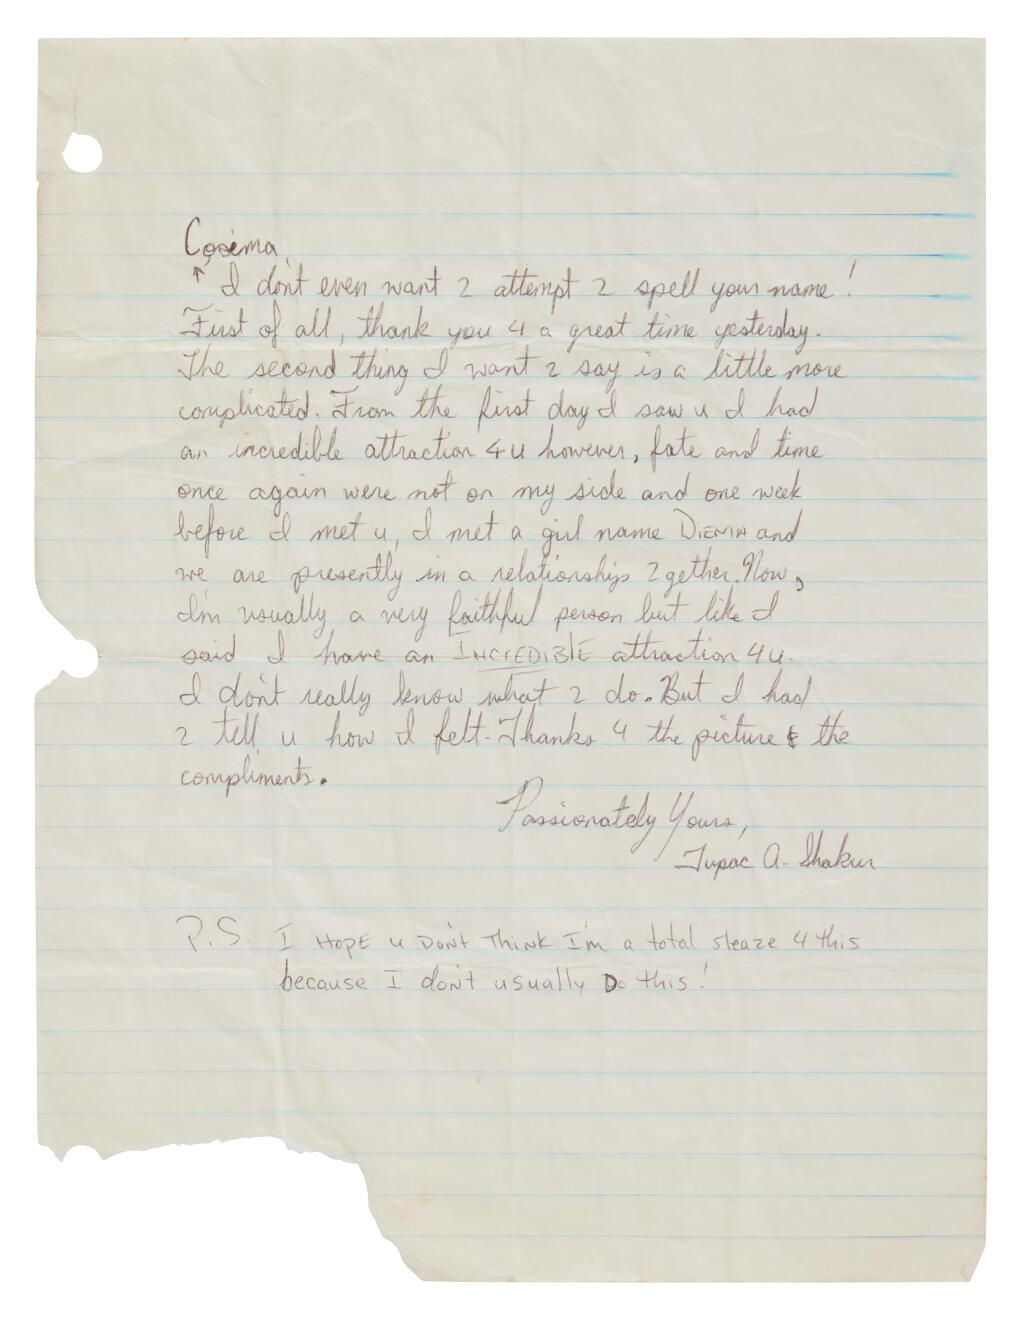 Cosima,
↑ I don't even want 2 attempt 2 spell your name!
First of all, thank you 4 a great time yesterday.
The second thing I want 2 say is a little more
complicated. From the first day I saw u I had
an incredible attraction 4 u however, fate and time
once again were not on my side and one week
before I met u, I met a girl name DIENIA and
we are presently in a relationship 2gether. Now,
I'm usually a very faithful person but like I
said I have an INCREDIBLE attraction 4 u.
I don't really know what 2 do. But I had
2 tell u how I felt. Thanks 4 the picture & the
compliments.
Passionately Yours,
Tupac A. Shakur
P.S. I HOPE u DON'T THINK I'm a total sleaze 4 this
because I don't usually Do this!